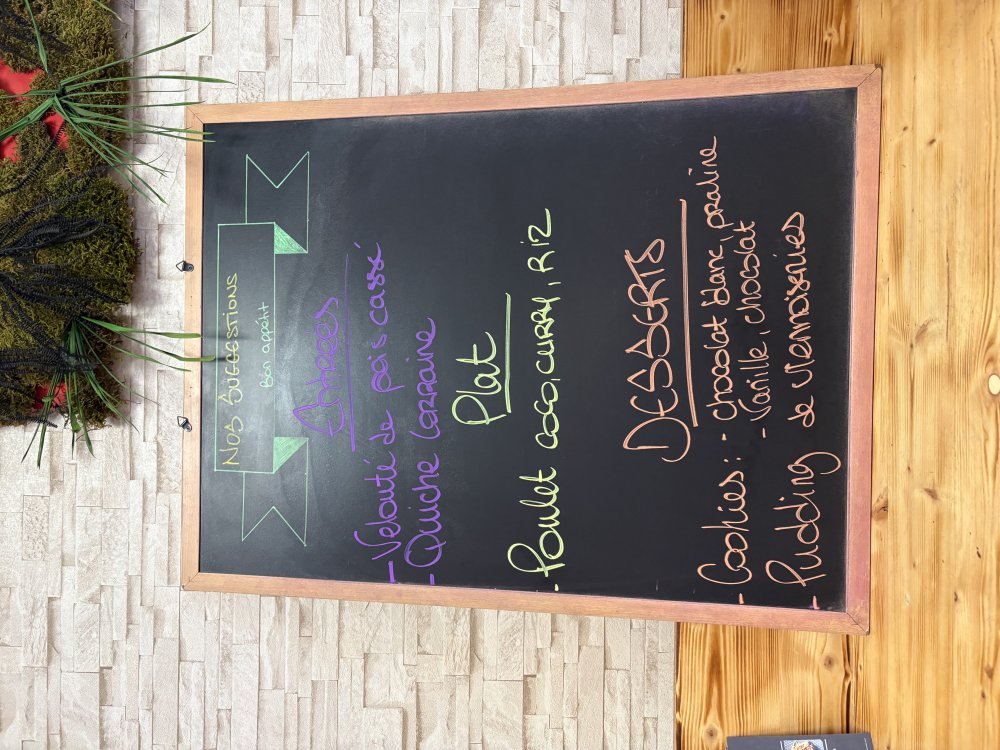 Nos Suggestions
Bon appétit
Entrées
- Velouté de pois cassé
- Quiche Lorraine
Plat
- Poulet coco, curry, Riz
DESSERTS
- Cookies : - chocolat blanc, praline
- Vanille, chocolat
- Pudding de viennoiseries